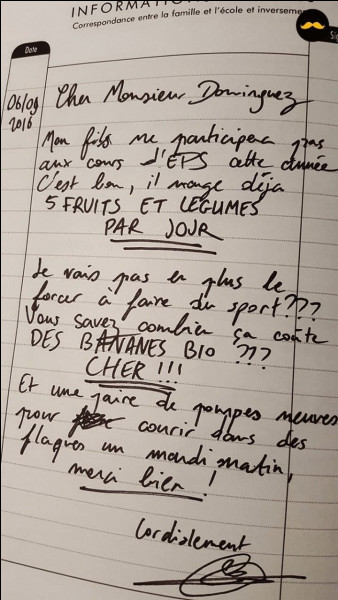 INFORMATIO
Correspondance entre la famille et l'école et inverseme
Date
Si
06/09
2016
Cher Monsieur Dominguez
Mon fils ne participera pas
aux cours d'EPS cette année
C'est bon, il mange déjà
5 FRUITS ET LÉGUMES
PAR JOUR
Je vais pas en plus le
forcer à faire du sport???
Vous savez combien ça coûte
DES BANANES BIO ???
CHER !!!
Et une paire de pompes neuves
pour courir dans des
flaques un mardi matin,
merci bien !
Cordialement